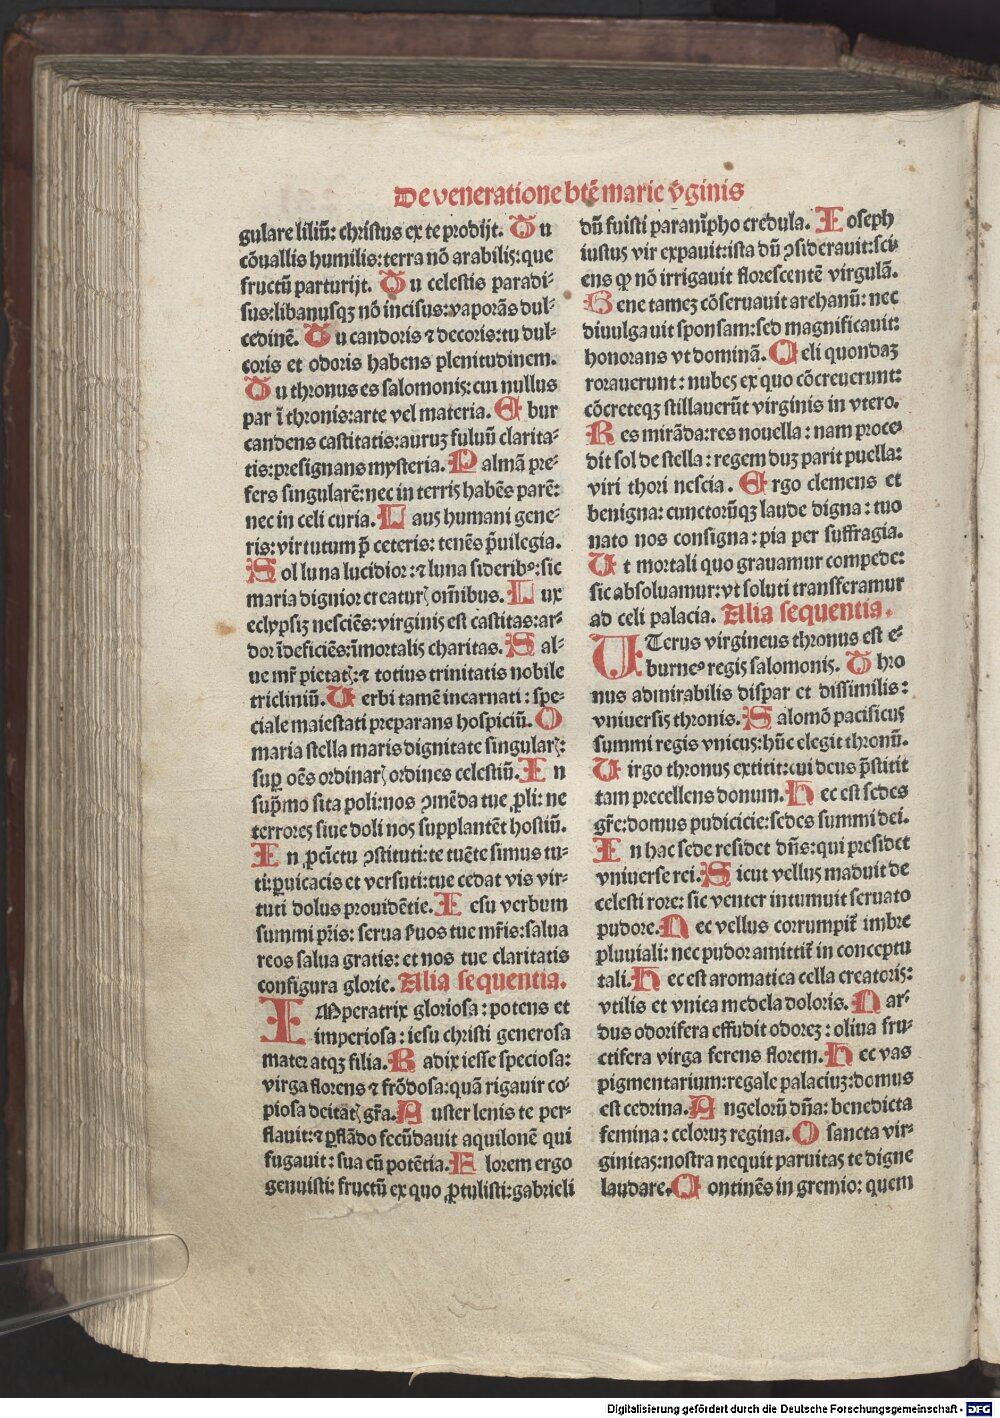 De veneratione btē marie v̄ginis
gulare liliū: christus ex te prodijt. Tu
cōuallis humilis: terra nō arabilis: que
fructū parturijt. Tu celestis paradi-
sus: libanusqꝫ nō incisus: vaporās dul-
cedinē. Tu candoris ⁊ decoris: tu dul-
coris et odoris habens plenitudinem.
Tu thronus es salomonis: cui nullus
par ī thronis: arte vel materia. Ebur
candens castitatis: auruꝫ fuluū clarita-
tis: presignans mysteria. Palmā pre-
fers singularē: nec in terris habēs parē:
nec in celi curia. Laus humani gene-
ris: virtutum p̄ ceteris: tenēs p̄uilegia.
Sol luna lucidior: ⁊ luna sideribꝰ: sic
maria dignior creaturꝭ om̄ibus. Lux
eclypsis nesciēs: virginis est castitas: ar-
dor īdeficiēs: īmortalis charitas. Sal-
ue mr̄ pietatꝭ: ⁊ totius trinitatis nobile
tricliniū. Verbi tamē incarnati: spe-
ciale maiestati preparans hospiciū. O
maria stella maris dignitate singularꝭ:
suꝑ oēs ordinarꝭ ordines celestiū. In
sup̄mo sita poli: nos ꝯmēda tue ꝓli: ne
terrores siue doli nos supplantēt hostiū.
In ꝓcīctu ꝯstituti: te tuēte simus tu-
ti: ꝑuicacis et versuti: tue cedat vis vir-
tuti dolus prouidētie. Iesu verbum
summi pr̄is: serua s̄uos tue mr̄is: salua
reos salua gratis: et nos tue claritatis
configura glorie. Alia sequentia.
IMperatrix gloriosa: potens et
imperiosa: iesu christi generosa
mater atqꝫ filia. Radix iesse speciosa:
virga florens ⁊ frōdosa: quā rigauit co-
piosa deitatꝭ gr̄a. Auster lenis te per-
flauit: ⁊ ꝑflādo fecūdauit aquilonē qui
fugauit: sua cū potētia. Florem ergo
genuisti: fructū ex quo ꝓtulisti: gabrieli
dū fuisti paranīpho credula. Ioseph
iustus vir expauit: ista dū ꝯsiderauit: sci-
ens ꝙ nō irrigauit florescentē virgulā.
Bene tameꝫ cōseruauit archanū: nec
diuulgauit sponsam: sed magnificauit:
honorans vt dominā. Celi quondaꝫ
rorauerunt: nubes ex quo cōcreuerunt:
cōcreteqꝫ stillauerūt virginis in vtero.
Res mirāda: res nouella: nam proce-
dit sol de stella: regem duꝫ parit puella:
viri thori nescia. Ergo clemens et
benigna: cunctorūqꝫ laude digna: tuo
nato nos consigna: pia per suffragia.
Vt mortali quo grauamur compede:
sic absoluamur: vt soluti transferamur
ad celi palacia. Alia sequentia.
UTerus virgineus thronus est e-
burneꝰ regis salomonis. Thro
nus admirabilis dispar et dissimilis:
vniuersis thronis. Salomō pacificus
summi regis vnicus: hūc elegit thronū.
Virgo thronus extitit: cui deus p̄stitit
tam precellens donum. Hec est sedes
gr̄e: domus pudicicie: sedes summi dei.
In hac sede residet dn̄s: qui presidet
vniuerse rei. Sicut vellus maduit de
celesti rore: sic venter intumuit seruato
pudore. Nec vellus corrumpit̄ imbre
pluuiali: nec pudor amittit̄ in conceptu
tali. Hec est aromatica cella creatoris:
vtilis et vnica medela doloris. Nar-
dus odorifera effudit odoreꝫ: oliua fru-
ctifera virga ferens florem. Hec vas
pigmentarium: regale palaciuꝫ: domus
est cedrina. Angelorū dn̄a: benedicta
femina: celoruꝫ regina. O sancta vir-
ginitas: nostra nequit paruitas te digne
laudare. Continēs in gremio: quem
Digitalisierung gefördert durch die Deutsche Forschungsgemeinschaft - DFG